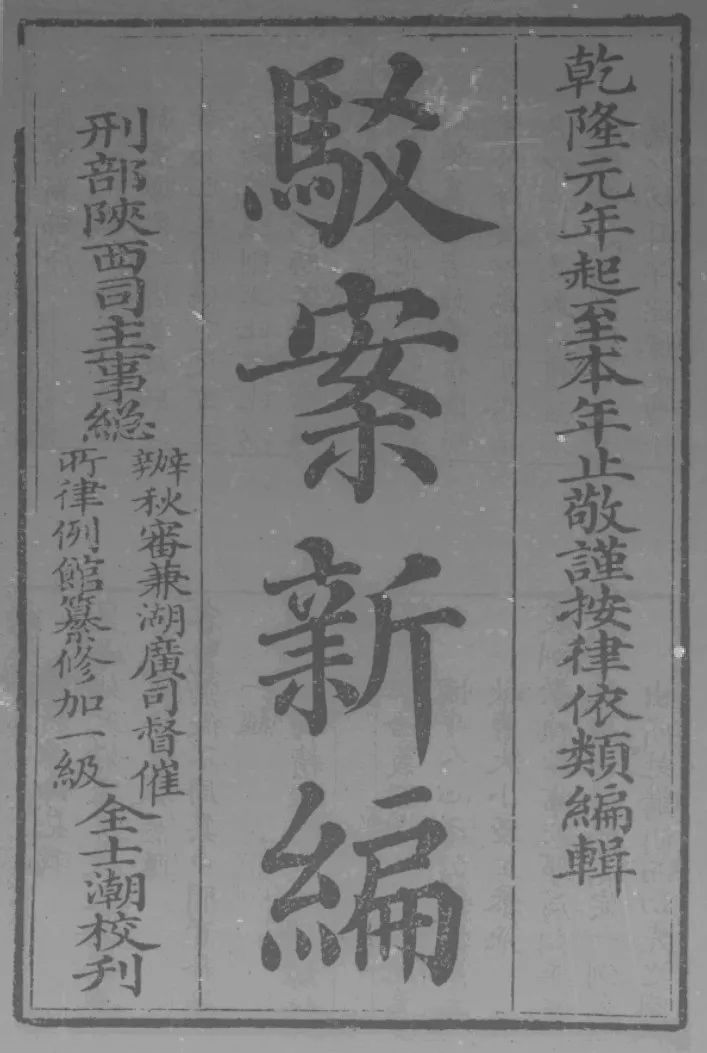 乾隆元年起至本年止敬謹按律依類編輯
駁案新編
刑部陝西司主事緫
辦秋審兼湖廣司督催
所律例館纂修加一級
全士潮校刊